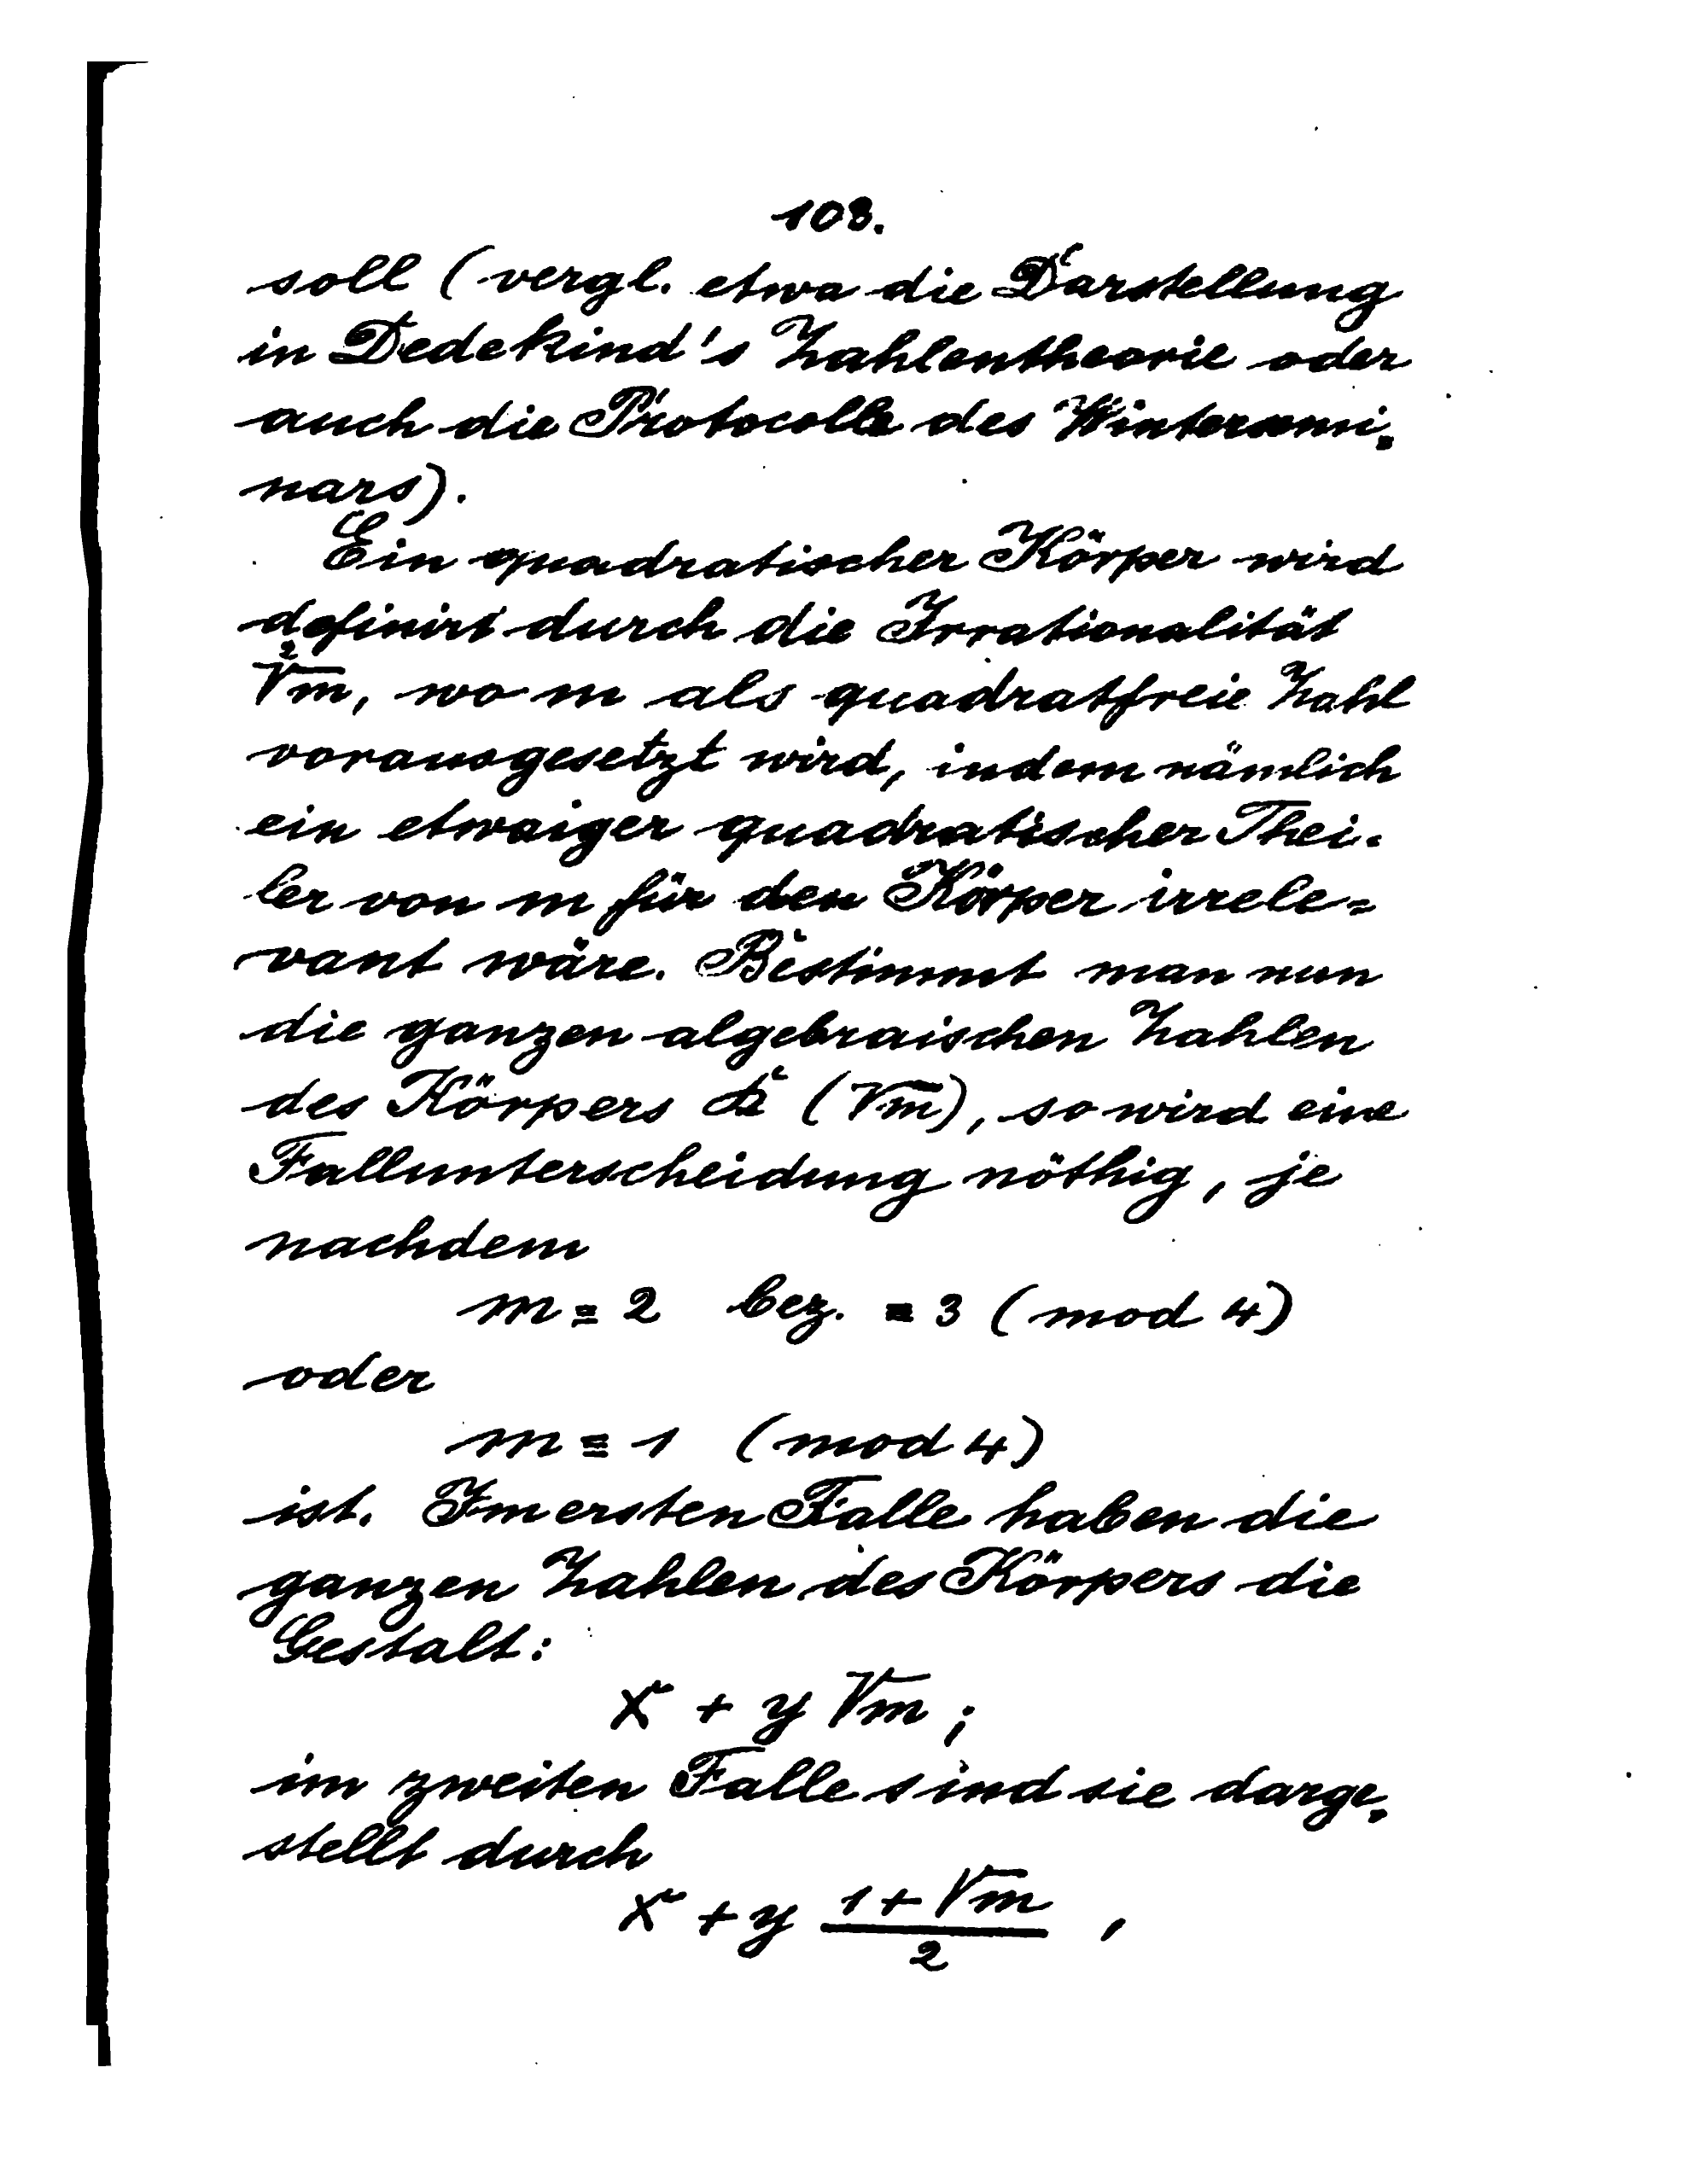 108.
soll (vergl. etwa die Darstellung
in Dedekind's Zahlentheorie oder
auch die Protocolle des Wintersemi-
nars).
Ein quadratischer Körper wird
definirt durch die Irrationalität
²√m, wo m als quadratfreie Zahl
vorausgesetzt wird, indem nämlich
ein etwaiger quadratischer Thei-
ler von m für den Körper irrele-
vant wäre. Bestimmt man nun
die ganzen algebraischen Zahlen
des Körpers k (√m), so wird eine
Fallunterscheidung nöthig, je
nachdem
m ≡ 2 bez. ≡ 3 (mod 4)
oder
m ≡ 1 (mod 4)
ist. Im ersten Falle haben die
ganzen Zahlen des Körpers die
Gestalt:
x + y √m ;
im zweiten Falle sind sie darge-
stellt durch
x + y (1 + √m)/2 ,